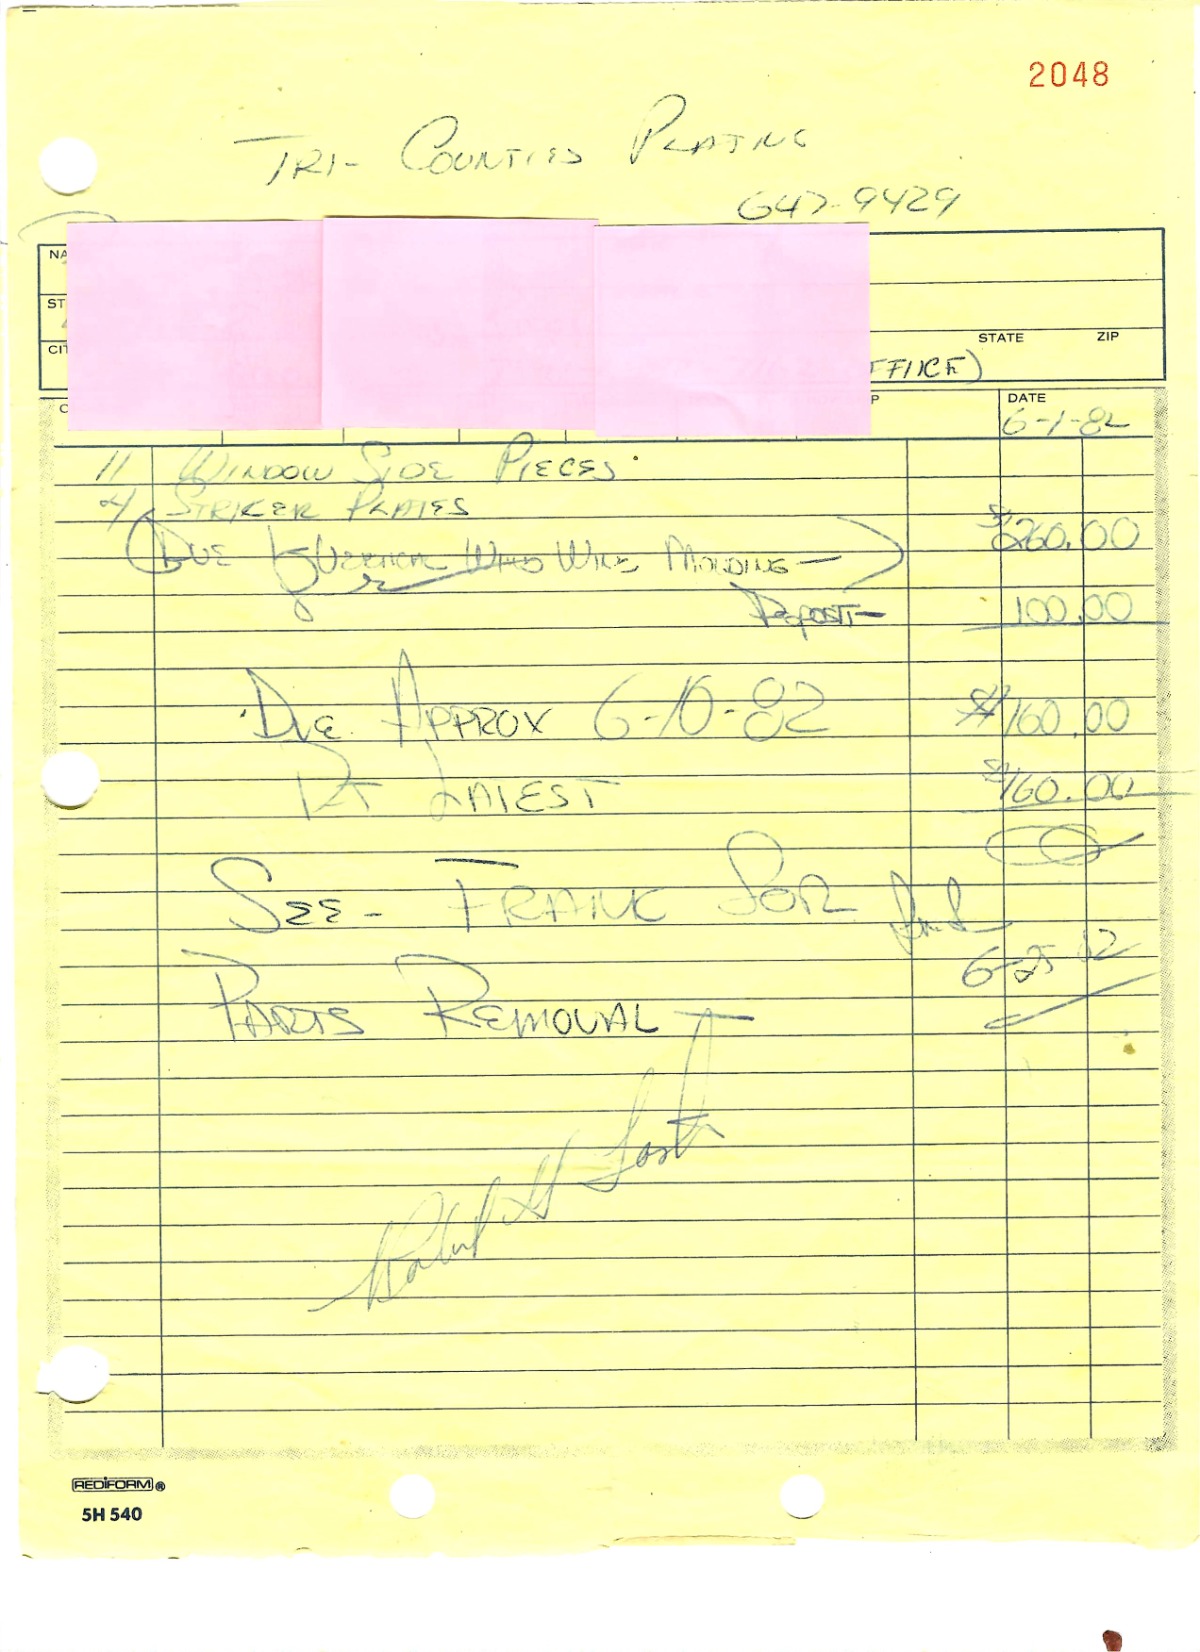 2048
TRI- COUNTIES PLATING
647-9429
NA
ST
STATE ZIP
CIT
FFICE)
P DATE
6-1-82
11 WINDOW SIDE PIECES
4 STRIKER PLATES
(DUE MOLDING—) $260.00
DEPOSIT— 100.00
DUE APPROX 6-10-82 $160.00
AT LATEST $160.00
SEE- FRANK FOR
6-25-82
PARTS REMOVAL
REDIFORM®
5H 540